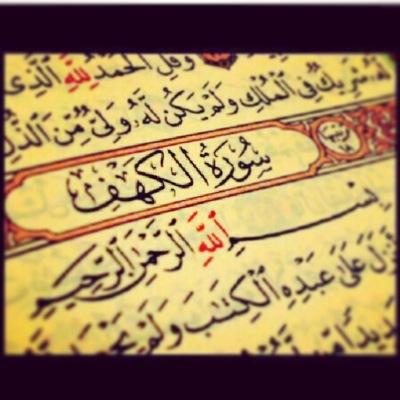 وَقُلِ الْحَمْدُ لِلَّهِ الَّذِي
لَّهُ شَرِيكٌ فِي الْمُلْكِ وَلَمْ يَكُن لَّهُ وَلِيٌّ مِّنَ الذُّلِّ
سُورَةُ الكَهْفِ
بِسْمِ اللَّهِ الرَّحْمَٰنِ الرَّحِيمِ
عَلَىٰ عَبْدِهِ الْكِتَابَ وَلَمْ